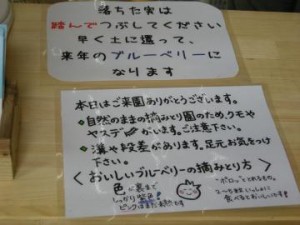 落ちた実は
踏んでつぶしてください
早く土に還って、
来年のブルーベリーに
なります
本日はご来園ありがとうございます。
◇自然のままの摘みとり園のため、クモや
ヤスデがいます。ご注意下さい。
◇溝や段差があります。足元お気をつけ
下さい。
〈おいしいブルーベリーの摘みとり方〉
色が裏まで
しっかり
ピンクは